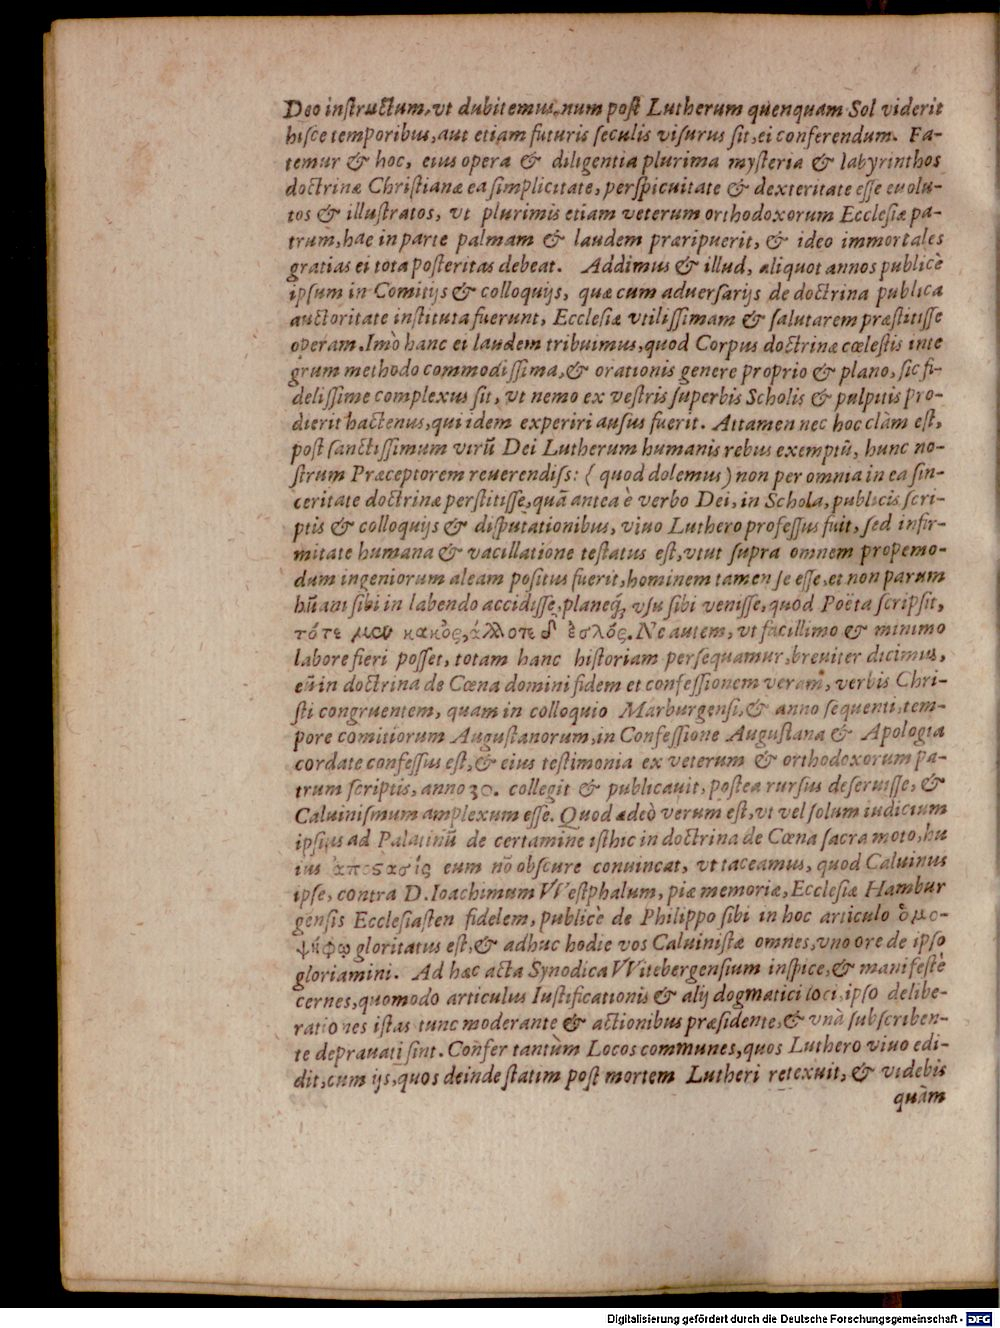 Deo instructum, vt dubitemus, num post Lutherum quenquam Sol viderit
hisce temporibus, aut etiam futuris seculis visurus sit, ei conferendum. Fa-
temur & hoc, eius opera & diligentia plurima mysteria & labyrinthos
doctrinæ Christianæ ea simplicitate, perspicuitate & dexteritate esse euolu-
tos & illustratos, vt plurimis etiam veterum orthodoxorum Ecclesiæ pa-
trum, hac in parte palmam & laudem præripuerit, & ideo immortales
gratias ei tota posteritas debeat. Addimus & illud, aliquot annos publicè
ipsum in Comitijs & colloquijs, quæ cum aduersarijs de doctrina publica
auctoritate instituta fuerunt, Ecclesiæ vtilissimam & salutarem præstitisse
operam. Imò hanc ei laudem tribuimus, quod Corpus doctrinæ cœlestis inte
grum methodo commodissima, & orationis genere proprio & plano, sic fi-
delissime complexus sit, vt nemo ex vestris superbis Scholis & pulpitis pro-
dierit hactenus, qui idem experiri ausus fuerit. Attamen nec hoc clàm est,
post sanctissimum virũ Dei Lutherum humanis rebus exemptũ, hunc no-
strum Præceptorem reuerendiss: (quod dolemus) non per omnia in ea sin-
ceritate doctrinæ perstitisse, quã antea è verbo Dei, in Schola, publicis scri-
ptis & colloquijs & disputationibus, viuo Luthero professus fuit, sed infir-
mitate humana & vacillatione testatus est, vtut supra omnem propemo-
dum ingeniorum aleam positus fuerit, hominem tamen se esse, et non parum
hũani sibi in labendo accidisse, planeq́; vsu sibi venisse, quod Poëta scripsit,
τότε μου κακὸς, ἄλλοτε δ' ἐσλός. Ne autem, vt facillimo & minimo
labore fieri posset, totam hanc historiam persequamur, breuiter dicimus,
eũ in doctrina de Cœna domini fidem et confessionem veram, verbis Chri-
sti congruentem, quam in colloquio Marburgensi, & anno sequenti, tem-
pore comitiorum Augustanorum, in Confessione Augustana & Apologia
cordate confessus est, & eius testimonia ex veterum & orthodoxorum pa-
trum scriptis, anno 30. collegit & publicauit, postea rursus deseruisse, &
Caluinismum amplexum esse. Quod adeò verum est, vt vel solum iudicium
ipsius ad Palatinũ de certamine isthic in doctrina de Cœna sacra moto, hu
ius ἀποστασίς eum nõ obscure conuincat, vt taceamus, quod Caluinus
ipse, contra D. Ioachimum VVestphalum, piæ memoriæ, Ecclesiæ Hambur
gensis Ecclesiasten fidelem, publicè de Philippo sibi in hoc articulo ὁμο-
ψήφῳ gloritatus est, & adhuc hodie vos Caluinistæ omnes, vno ore de ipso
gloriamini. Ad hæc acta Synodica VVitebergensium inspice, & manifestè
cernes, quomodo articulus Iustificationis & alij dogmatici loci, ipso delibe-
rationes istas tunc moderante & actionibus præsidente, & vnà subscriben-
te deprauati sint. Confer tantùm Locos communes, quos Luthero viuo edi-
dit, cum ijs, quos deinde statim post mortem Lutheri retexuit, & videbis
quàm
Digitalisierung gefördert durch die Deutsche Forschungsgemeinschaft - DFG